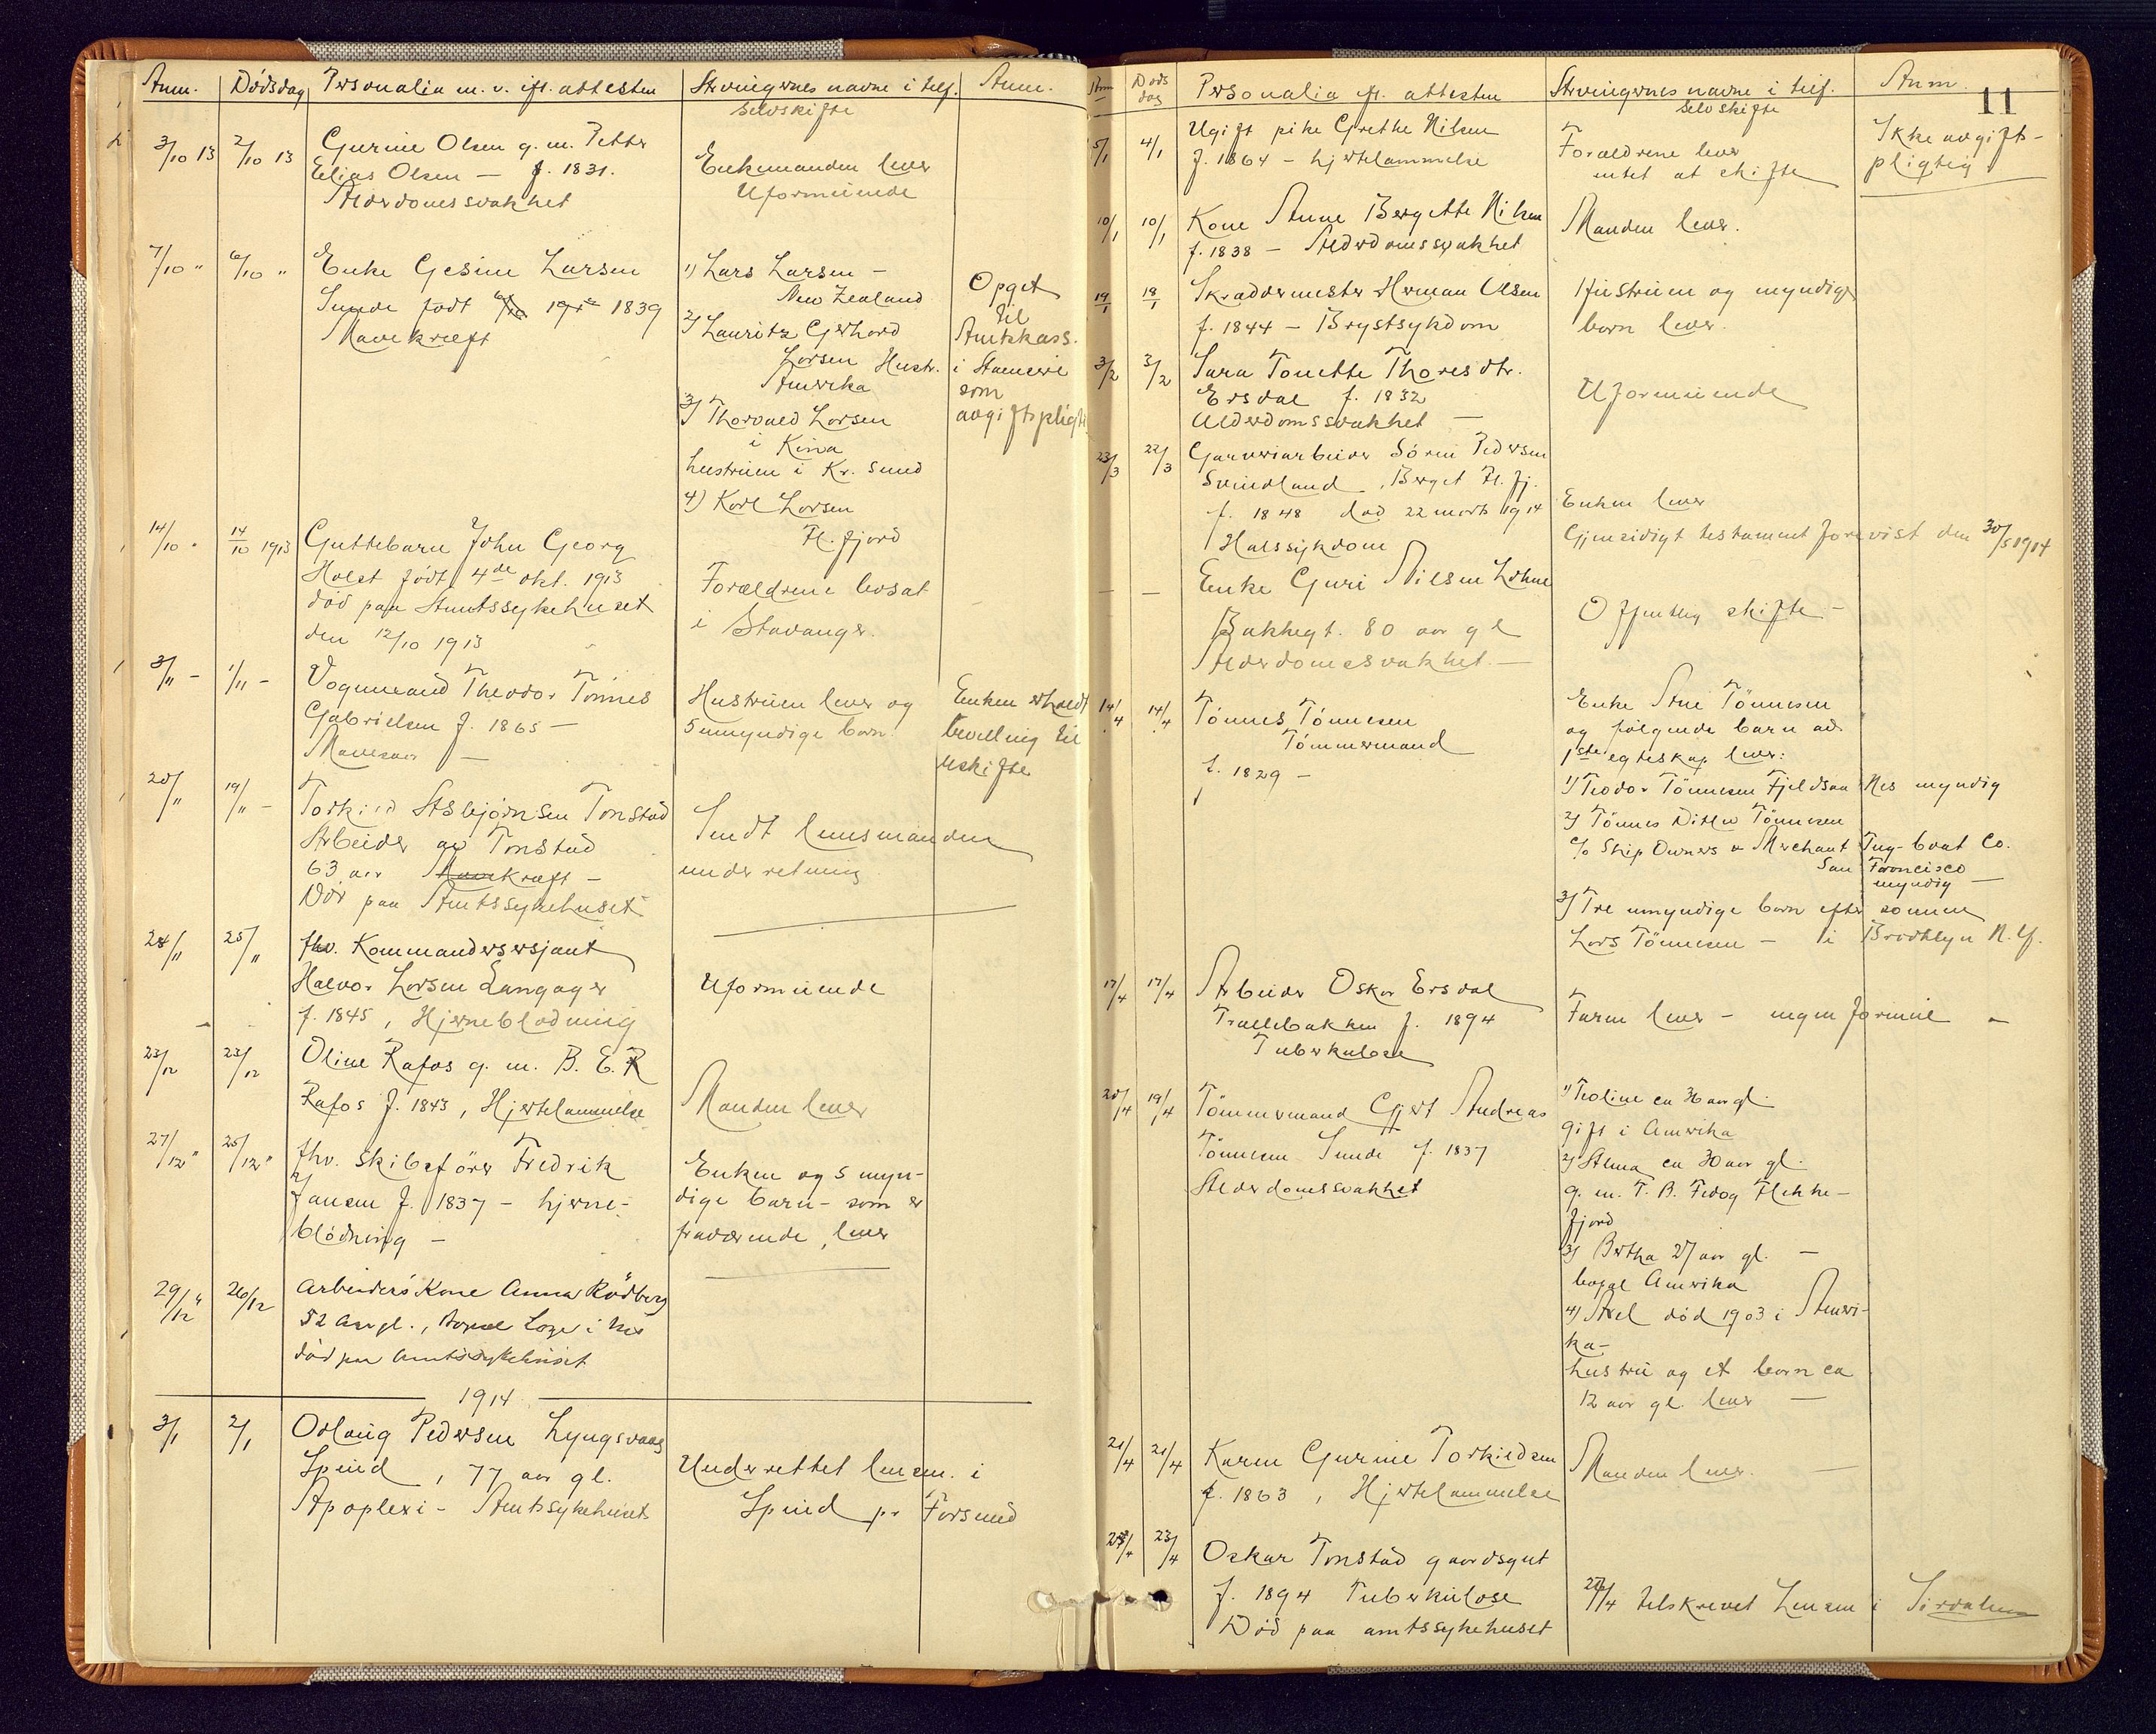 Anm. Dödsdag Personalia m. v. ifl. attesten Arvingernes navne i tilf. Anm.
selvskifte
3/10 13 2/10 13 Gurine Olsen g. m. Petter
Elias Olsen — f. 1831.
Alderdomssvakhet
Enkemanden lever
Uformuende
7/10 " 6/10 " Enke Gesine Larsen
Sunde född 1839
Mavekræft
1) Lars Larsen —
New Zealand
2) Lauritz Gerhard
Larsen Hustr.
Amerika
3) Thorvald Larsen
i Kina
hustruen i Kr. Sund
4) Karl Larsen
Fl. fjord
Opget
til
Amtskass.
i
som
avgiftspligt.
14/10 " 14/10 1913 Guttebarn John Georg
Holst född 4de okt. 1913
död paa Amtssykehuset
den 12/10 1913
Forældrene bosat
i Stavanger.
3/11 - 1/11 - Vognmand Theodor Tönnes
Gabrielsen f. 1865 —
Mavesaar —
Hustruen lever og
5 umyndige barn
Enken erholdt
bevilling til
uskifte
20/11 19/11 - Torkild Asbjörnsen Tonstad
Arbeider av Tonstad
63 aar Mavekræft —
Död paa Amtssykehuset
Sendt lensmanden
underretning
28/11 25/11 fhv. Kommandersersjant
Halvor Larsen Langager
f. 1845, Hjerneblödning
Uformuende
23/12 23/12 Oline Rafos g. m. B. E. R
Rafos f. 1843, Hjertelammelse
Manden lever
27/12 " 25/12 " fhv. Skibsförer Fredrik
Jansen f. 1837 — hjerne-
blödning —
Enken og 5 myn-
dige barn — som er
fraværende, lever
29/12 " 26/12 Arbeiders Kone Anna Rödberg
52 aar gl., Bopæl Loge i Nes
död paa Amtssykehuset
1914
3/1 2/1 Oslaug Pedersen Lyngsvaag
Spind, 77 aar gl.
Apoplexi — Amtssykehuset
Underrettet lensm. i
Spind pr Farsund
11
Anm Döds dag Personalia ifl. attesten Arvingernes navne i tilf. Anm.
selvskifte
5/1 4/1 Ugift pike Grethe Nilsen
f. 1864 — hjertelammelse
Forældrene lever
intet at skifte
Ikke avgift-
pligtig
10/1 10/1 Kone Anne Bergette Nilsen
f. 1838 — Alderdomssvakhet
Manden lever.
19/1 18/1 Skraddermester Herman Olsen
f. 1844 — Brystsykdom
Hustruen og myndige
barn lever.
3/2 3/2 Sara Tonette Thoresdtr.
Ersdal f. 1832
Alderdomssvakhet —
Uformuende
23/3 22/3 Garveriarbeider Sören Pedersen
Svindland, Berget Fl. fj.
f. 1848 död 22 marts 1914
Halssykdom
Enken lever
Gjensidigt testament forevist den 30/5 1914
— — Enke Guri Nilsen Lohne
Bakkegt. 80 aar gl
Alderdomssvakhet. —
Offentlig skifte —
14/4 14/4 Tönnes Tönnesen
Tömmermand
f. 1829 —
Enke Ane Tönnesen
og følgende barn av
1ste egteskap lever:
1) Teodor Tönnesen Fjeldsaa Nes myndig
2) Tönnes Ditlev Tönnesen
c/o Ship Owners & Merchant Tug-boat Co.
San Francisco
myndig —
3) Tre umyndige barn efter sönnen
Lars Tönnesen — i Brooklyn N. Y.
17/4 17/4 Arbeider Oskar Ersdal
Trællebakken f. 1894
Tuberkulose
Faren lever — ingen formue —
20/4 19/4 Tömmermand Gjert Andreas
Tönnesen Sunde f. 1837
Alderdomssvakhet
1) Teoline ca 36 aar gl.
gift i Amerika
2) Alma ca 30 aar gl.
g. m. T. B. Fedog Flekke-
fjord
3) Bertha 27 aar gl. —
bopæl Amerika
4) Axel död 1903 i Ameri-
ka —
hustru og et barn ca
12 aar gl. lever —
21/4 21/4 Karen Gurine Torkildsen
f. 1863, Hjertelammelse
Manden lever. —
23/4 Oskar Tonstad gaardsgut
f. 1894 Tuberkulose
Död paa amtssykehuset
27/4 tilskrevet Lensm i Sirdalen